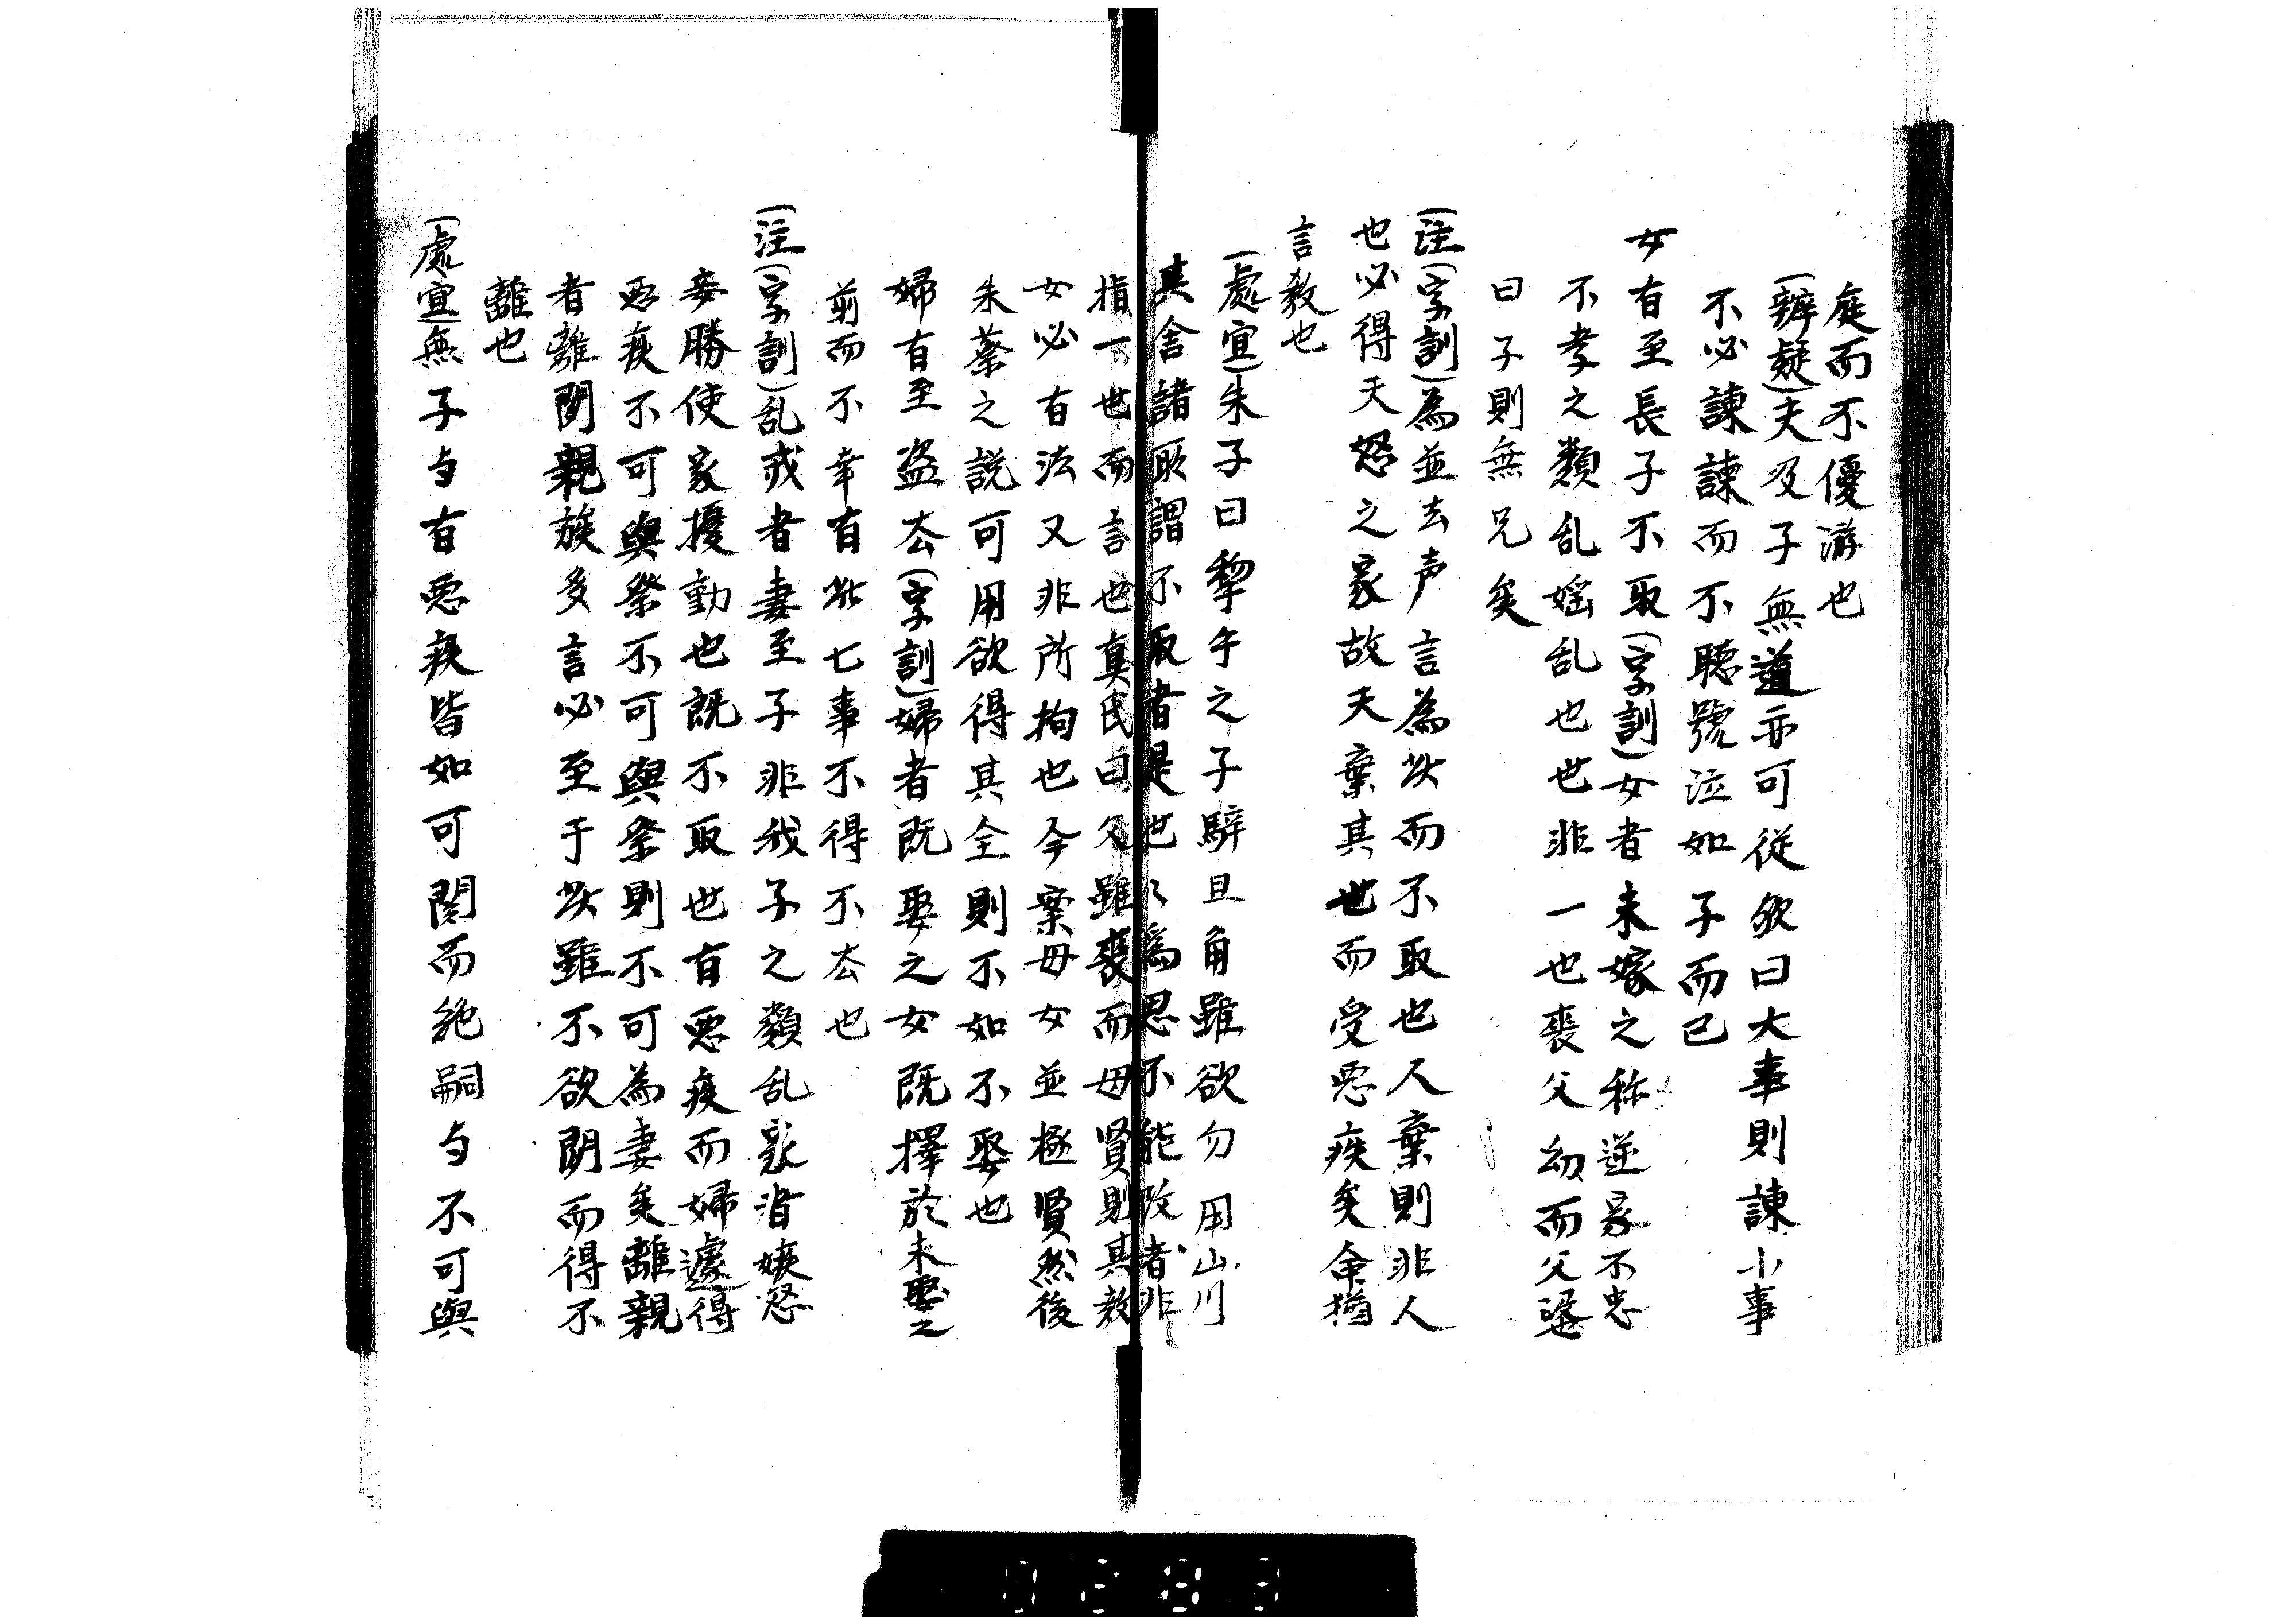 庭而不優游也
(辨疑)夫及子無道亦可從欤曰大事則諫小事
不必諫諫而不聽號泣如子而已
女有至長子不取(字訓)女者未嫁之称逆家不忠
不孝之類乱婬乱也世非一也喪父幼而父選
曰子則無兄矣
(注)(字訓)為並去声言為此而不取也人棄則非人
也必得天怒之家故天棄其世而受悪疾矣命猶
言教也
(處宜)朱子曰犂牛之子騂且角雖欲勿用山川
其舍諸取謂不取者是世〻為悪不能改者非
指一世而言也真氏曰父雖喪而母賢則其教
女必有法又非所拘也今棄母女並極賢然後
朱蔡之説可用欲得其全則不如不娶也
婦有至盗厺(字訓)婦者既娶之女既擇於未娶之
前而不幸有此七事不得不厺也
(注)(字訓)乱戎者妻至子非我子之類乱家者嫉怒
妾勝使家擾動也既不取世有悪疾而婦遽得
悪疾不可與祭不可與祭則不可為妻矣離親
者離間親族多言必至于此雖不欲間而得不
離也
(處宜)無子与有悪疾皆如可関而絶嗣与不可與